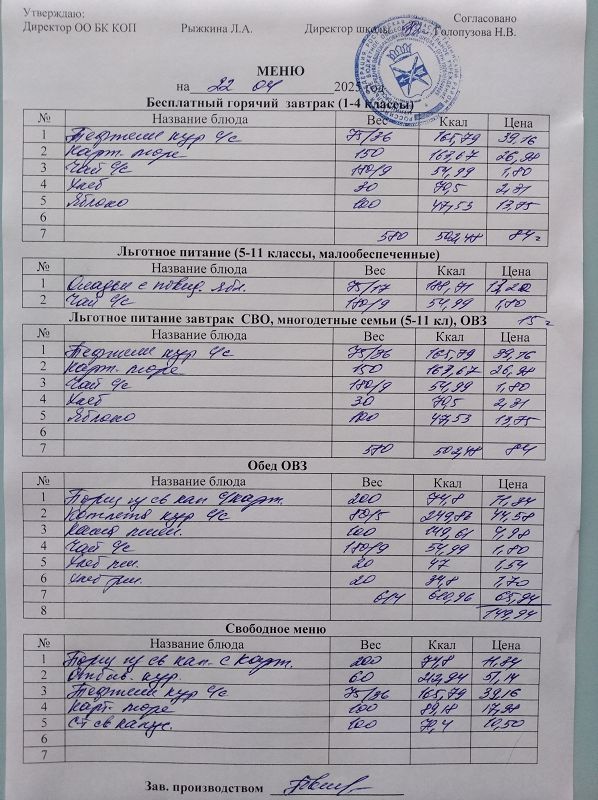 Утверждаю: Согласовано
Директор ОО БК КОП Рыжкина Л.А. Директор школы Голопузова Н.В.
МЕНЮ
на 22 04 2025 год
Бесплатный горячий завтрак (1-4 классы)
№ Название блюда Вес Ккал Цена
1 Тефтели кур с/с 75/36 165,79 39,16
2 Карт. пюре 150 163,67 26,98
3 Чай с/с 180/9 54,99 1,80
4 Хлеб 30 70,5 2,31
5 Яблоко 100 47,53 13,75
6
7 580 502,48 84
Льготное питание (5-11 классы, малообеспеченные)
№ Название блюда Вес Ккал Цена
1 Оладьи с повид. ябл. 75/17 13,20
2 Чай с/с 180/9 54,99 1,80
Льготное питание завтрак СВО, многодетные семьи (5-11 кл), ОВЗ 15
№ Название блюда Вес Ккал Цена
1 Тефтели кур с/с 75/36 165,79 39,16
2 Карт. пюре 150 163,67 26,98
3 Чай с/с 180/9 54,99 1,80
4 Хлеб 30 70,5 2,31
5 Яблоко 100 47,53 13,75
6
7 580 502,48 84
Обед ОВЗ
№ Название блюда Вес Ккал Цена
1 Борщ из св кап с/карт. 200 74,8 11,84
2 Котлета кур с/с 80/5 249,86 44,58
3 Каша 100 149,61 4,98
4 Чай с/с 180/9 54,99 1,80
5 Хлеб пш. 20 47 1,54
6 Хлеб рж. 20 34,8 1,20
7 614 610,96 65,94
8 149,94
Свободное меню
№ Название блюда Вес Ккал Цена
1 Борщ из св кап. с карт. 200 74,8 11,84
2 Отбив. кур. 60 212,94 51,14
3 Тефтели кур с/с 75/36 165,79 39,16
4 Карт. пюре 100 89,18 17,98
5 Ст св капус. 100 70,4 10,50
6
7
Зав. производством